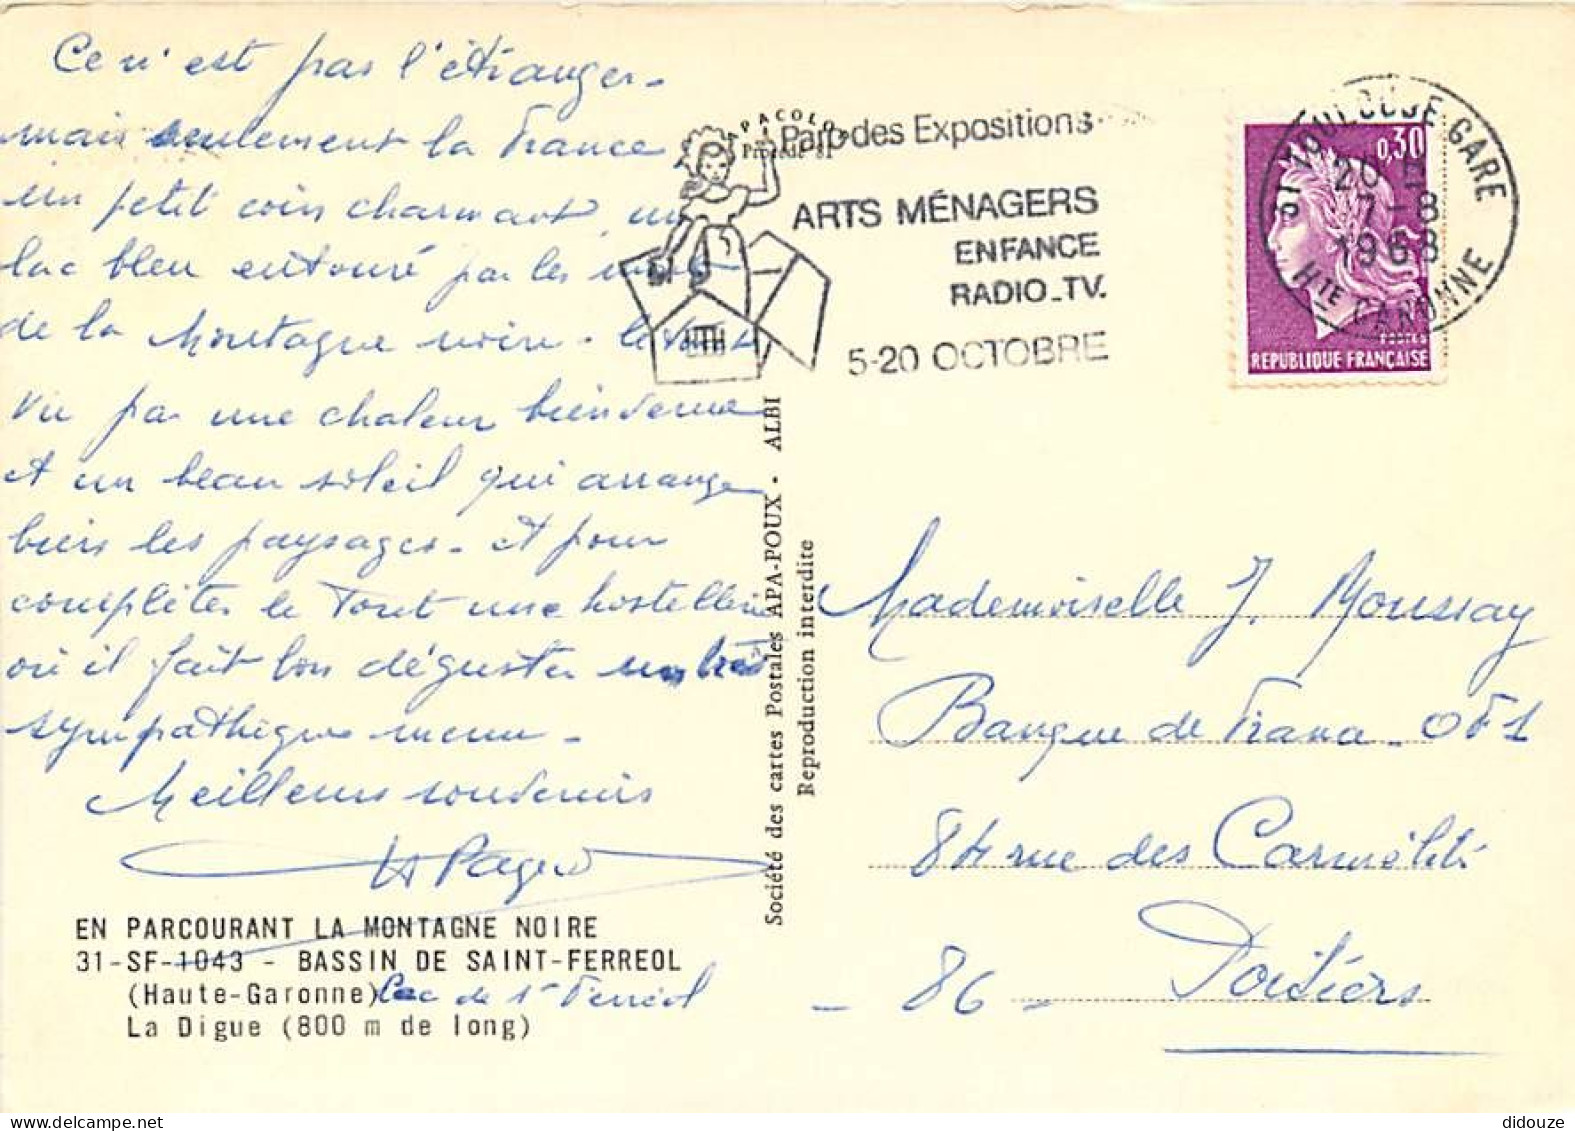 Ce n'est pas l'étranger -
mais seulement la France
un petit coin charmant, un
lac bleu entouré par les monts
de la Montagne noire. le tout
vu par une chaleur bienvenue
et un beau soleil qui arrange
bien les paysages - et pour
compléter le tout une hostellerie
où il fait bon déguster un très
sympathique menu -
Meilleurs souvenirs
EN PARCOURANT LA MONTAGNE NOIRE
31-SF-1043 - BASSIN DE SAINT-FERREOL
(Haute-Garonne) Lac de St Ferréol
La Digue (800 m de long)
APACOLOR
Procédé 81
Parc des Expositions
ARTS MÉNAGERS
ENFANCE
RADIO_TV.
5-20 OCTOBRE
Société des cartes Postales APA-POUX - ALBI
Reproduction interdite
31 TOULOUSE GARE
20 H
7-8
1968
HTE GARONNE
0,30
POSTES
REPUBLIQUE FRANÇAISE
Mademoiselle J. Moussay
Banque de France -
84 rue des Carmélites
- 86 - Poitiers
didouze